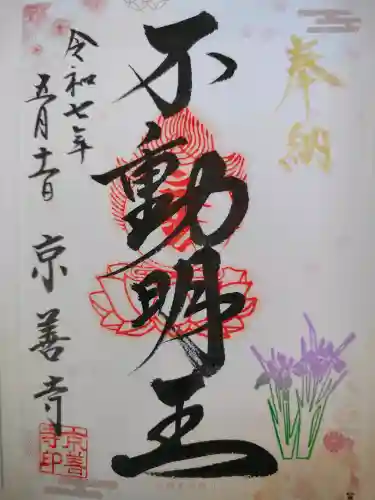 奉納
不動明王
令和七年
五月十一日
京善寺
京善
寺印